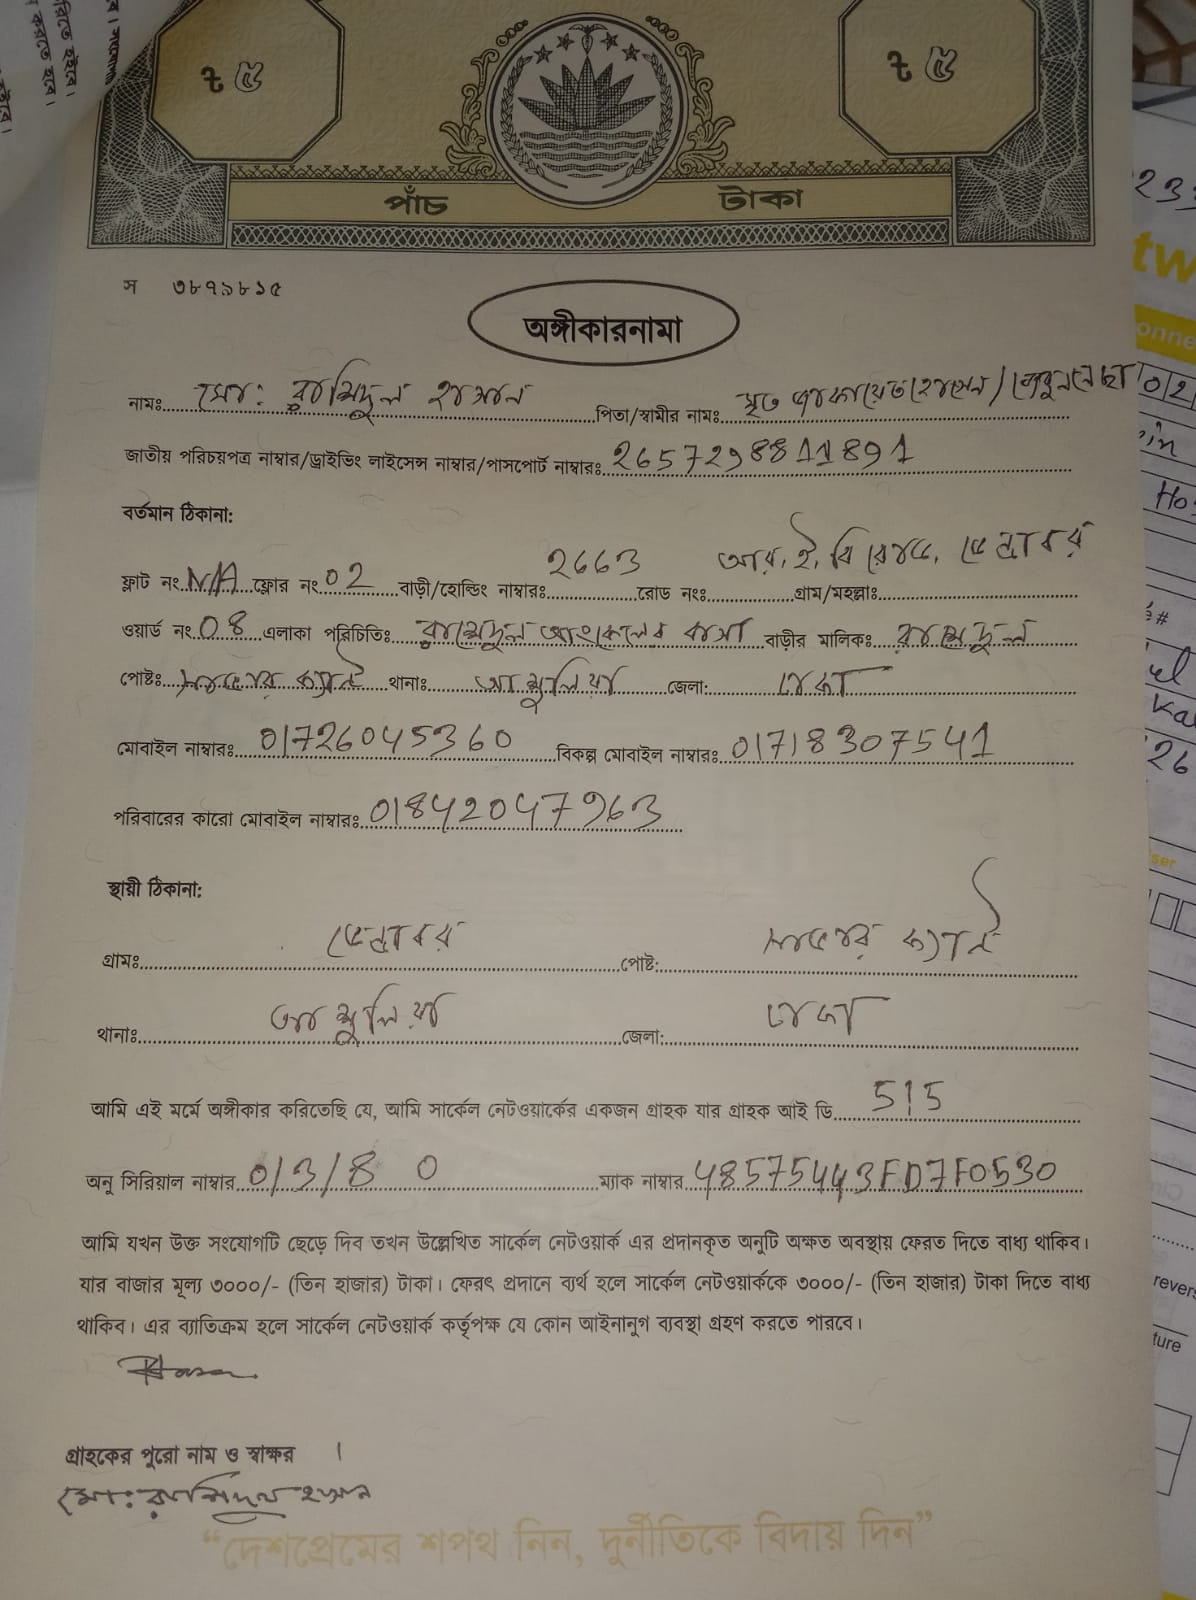 ৳ ৫
৳ ৫
পাঁচ টাকা
স ৩৮৭৯৮১৫
অঙ্গীকারনামা
নামঃ মোঃ রাশিদুল হাসান পিতা/স্বামীর নামঃ মৃত
জাতীয় পরিচয়পত্র নাম্বার/ড্রাইভিং লাইসেন্স নাম্বার/পাসপোর্ট নাম্বারঃ 2657298811891
বর্তমান ঠিকানা:
ফ্লাট নং N/A ফ্লোর নং 02 বাড়ী/হোল্ডিং নাম্বারঃ 2663 রোড নংঃ গ্রাম/মহল্লাঃ
ওয়ার্ড নং 08 এলাকা পরিচিতিঃ বাড়ীর মালিকঃ রাশেদুল
পোষ্টঃ থানাঃ আশুলিয়া জেলা: ঢাকা
মোবাইল নাম্বারঃ 01726045360 বিকল্প মোবাইল নাম্বারঃ 01718307541
পরিবারের কারো মোবাইল নাম্বারঃ 01842047963
স্থায়ী ঠিকানা:
গ্রামঃ পোষ্ট:
থানাঃ আশুলিয়া জেলা: ঢাকা
আমি এই মর্মে অঙ্গীকার করিতেছি যে, আমি সার্কেল নেটওয়ার্কের একজন গ্রাহক যার গ্রাহক আই ডি 515
অনু সিরিয়াল নাম্বার 0/3/8 0 ম্যাক নাম্বার 48575443FD7F0530
আমি যখন উক্ত সংযোগটি ছেড়ে দিব তখন উল্লেখিত সার্কেল নেটওয়ার্ক এর প্রদানকৃত অনুটি অক্ষত অবস্থায় ফেরত দিতে বাধ্য থাকিব।
যার বাজার মূল্য ৩০০০/- (তিন হাজার) টাকা। ফেরৎ প্রদানে ব্যর্থ হলে সার্কেল নেটওয়ার্ককে ৩০০০/- (তিন হাজার) টাকা দিতে বাধ্য
থাকিব। এর ব্যতিক্রম হলে সার্কেল নেটওয়ার্ক কর্তৃপক্ষ যে কোন আইনানুগ ব্যবস্থা গ্রহণ করতে পারবে।
গ্রাহকের পুরো নাম ও স্বাক্ষর
মোঃ রাশিদুল হাসান
“দেশপ্রেমের শপথ নিন, দুর্নীতিকে বিদায় দিন”